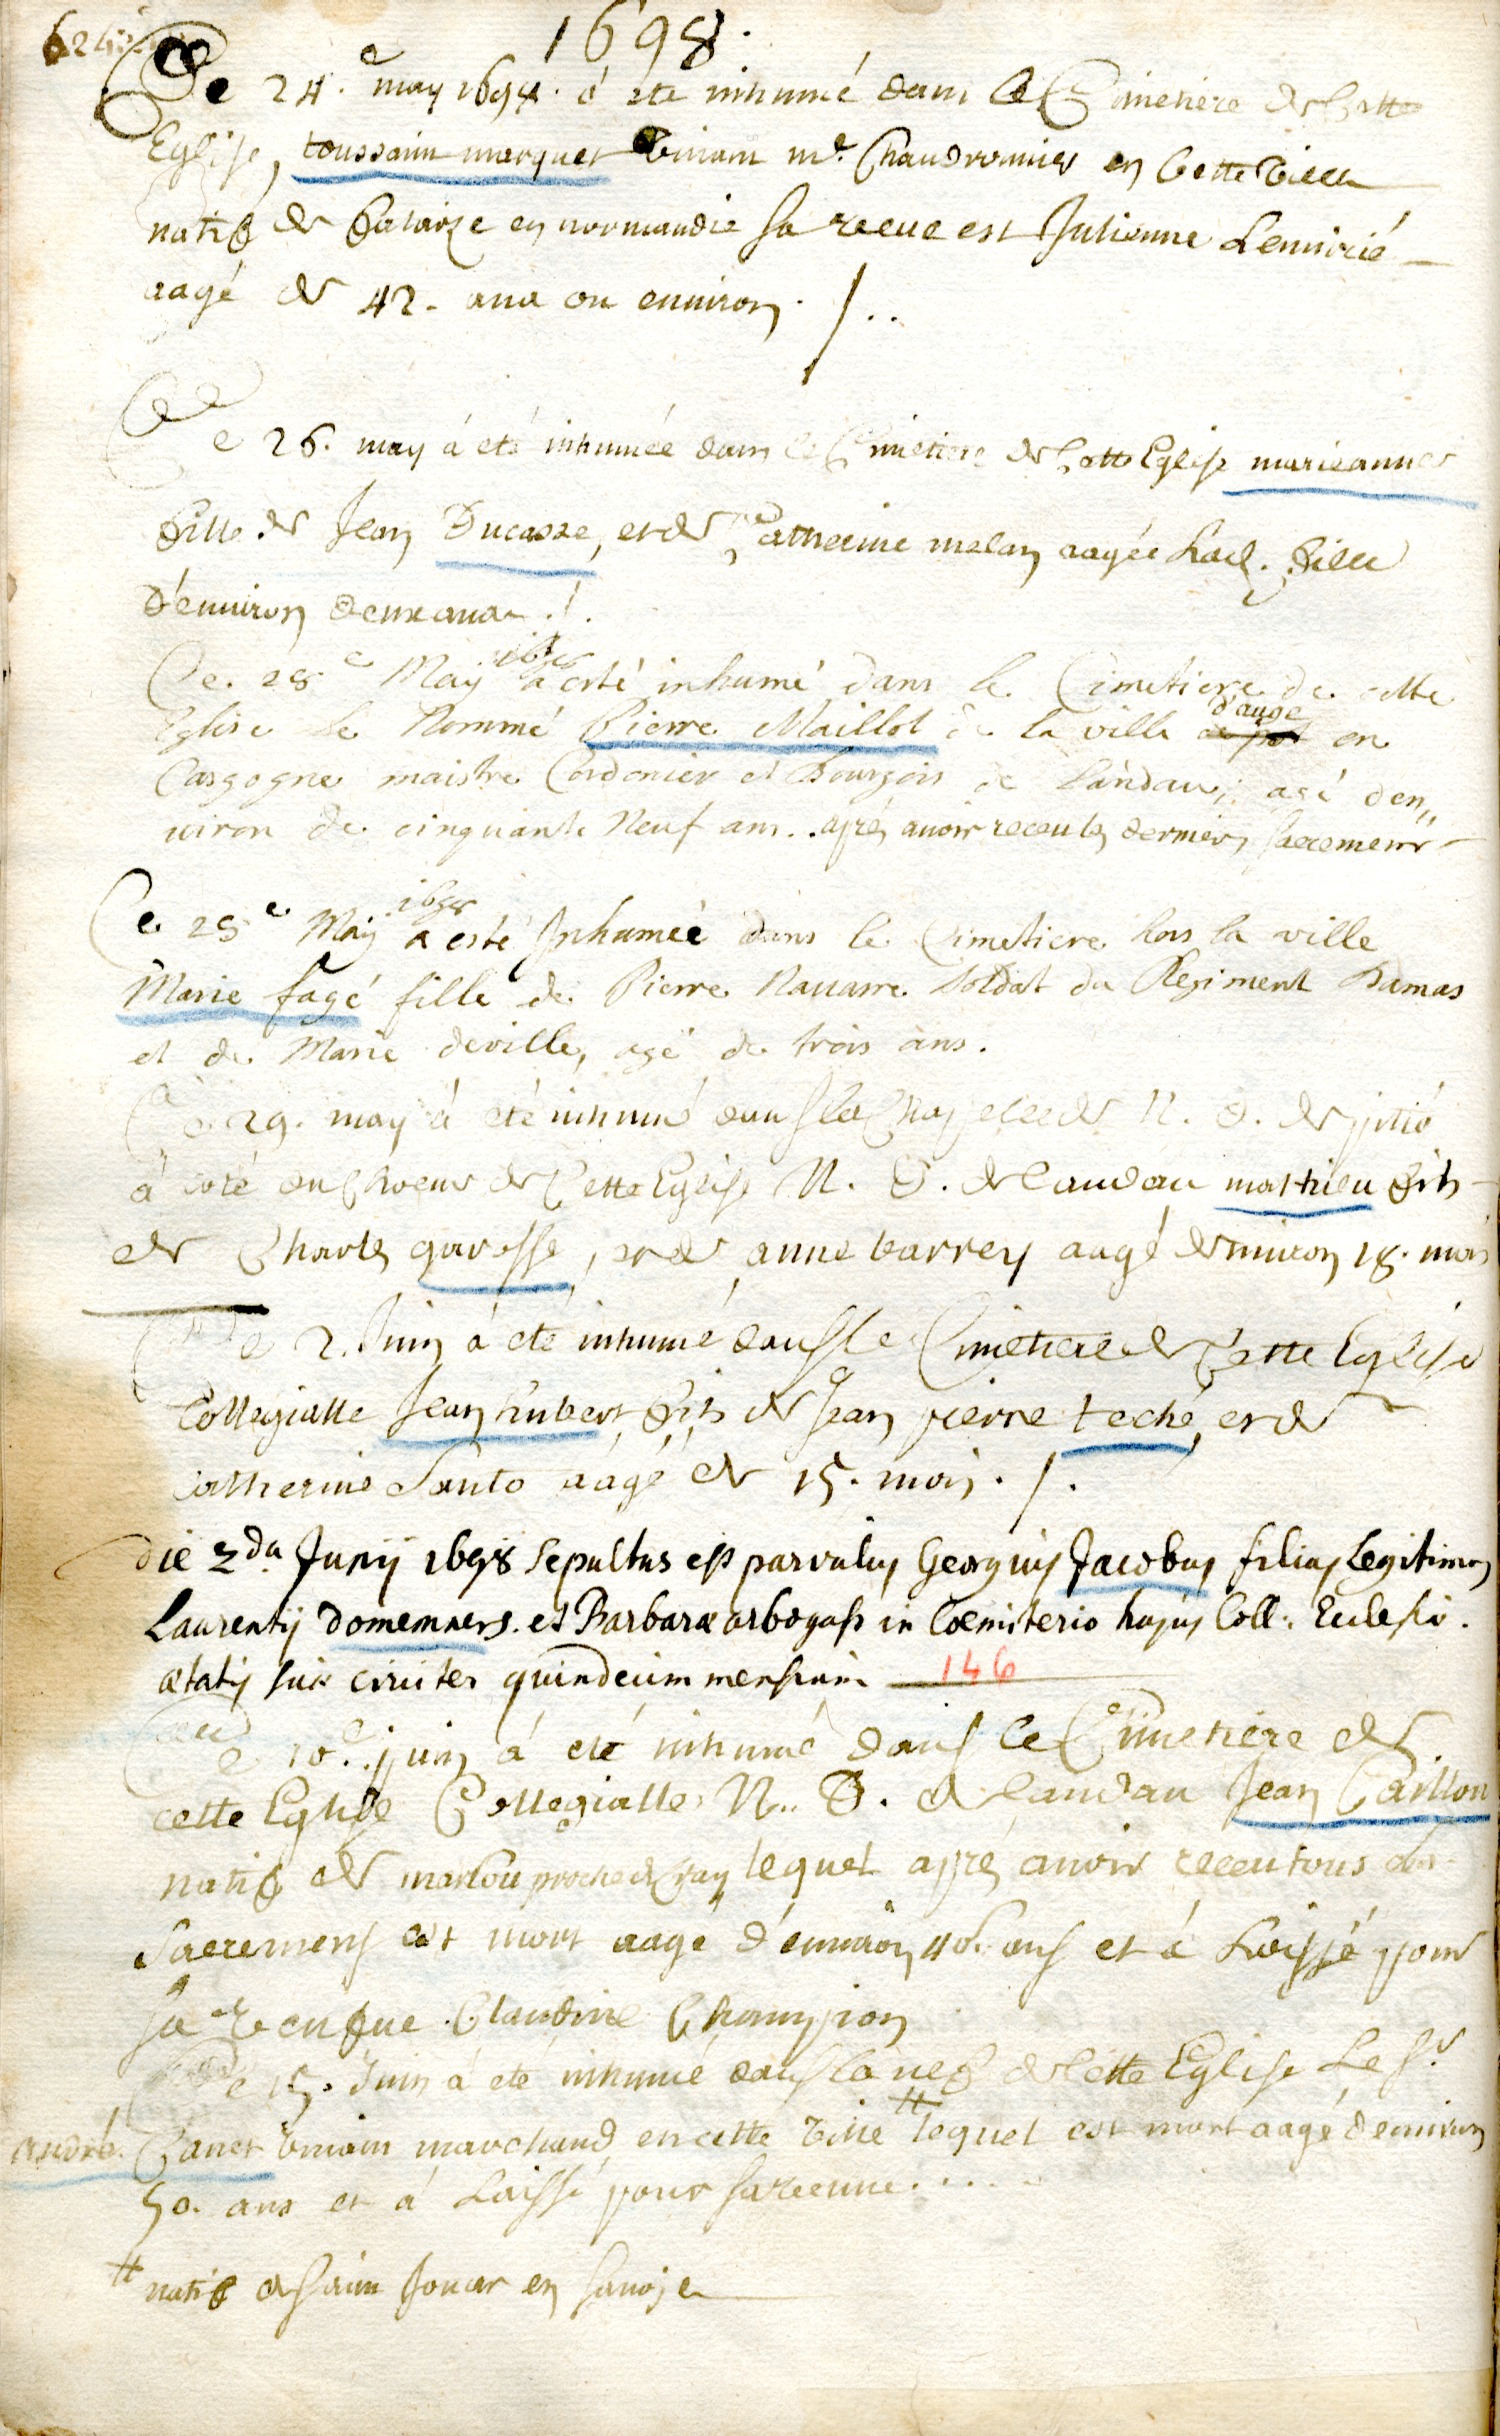 1698.
Ce 24.e may 1698. á eté inhumé dans le Cimetiere de Cette
Eglise, toussain marquet viuant me. Chaudronnier en Cette ville
natif de falaize en normandie sa veeue est Julienne Lemirié
aagé de 42. ans ou enuiron. /..
Ce 26. may á eté inhumée dans le Cimetiere de Cette Eglise marieanne
fille de Jean Ducasse, et de Catherine melan aagée lad. fille
d'enuiron deux ans ./.
Ce. 28e May 1698 a esté inhumé dans le Cimetiere de cette
Eglise le Nommé Pierre Maillot de la ville d'auge en
Casgogne maistre Cordonier et Bourgois de Landau, agé d'en„
uiron de cinquante Neuf ans.. aprés auoir receu les derniers sacremens
Ce 28e May 1698 a esté Inhumée dans le Cimetiere hors la ville
Marie fagé fille de Pierre Nauarre soldat du Regiment Damas
et de Marie deville, agé de trois ans.
Ce 29. may á eté inhumé dans la Chapelle de N. D. de pitié
á coté du Choeur de Cette Eglise N. D. de Landau mathieu fils
de Charles garosse, et de anne barrey aagé denuiron 18. mois
Ce 2. Juin á eté inhumé dans le Cimetiere de Cette Eglise
Collegialle Jean hubert fils de Jean pierre teché, et de
Catherine Santo aagé de 15. mois. /.
Die 2da Junij 1698 sepultus est parvulus Georgius Jacobus filius Legitimus
Laurentij Domemners. et Barbaræ arbogast in Cœmiterio hujus Coll: Ecclesiæ.
ætatis suæ circiter quindecim mensium 146
Ce 10.e juin á eté inhumé dans le Cimetiere de
cette Eglise Collegialle N.. D. de Landau Jean Caillou
natif de marlou proche de gray lequel aprés auoir receu tous les
Sacremens est mort aagé d'enuiron 40. ans et á Laissé pour
sa veufue Claudine Champion
Ce 15. Juin á eté inhumé dans la nef de Cette Eglise Le Sr
andré. Canet viuain marchand en cette ville # lequel est mort aagé denuiron
50. ans et á Laissé pour sa veeuue. . . . .
# natif de Saint Jouar en Sauoje